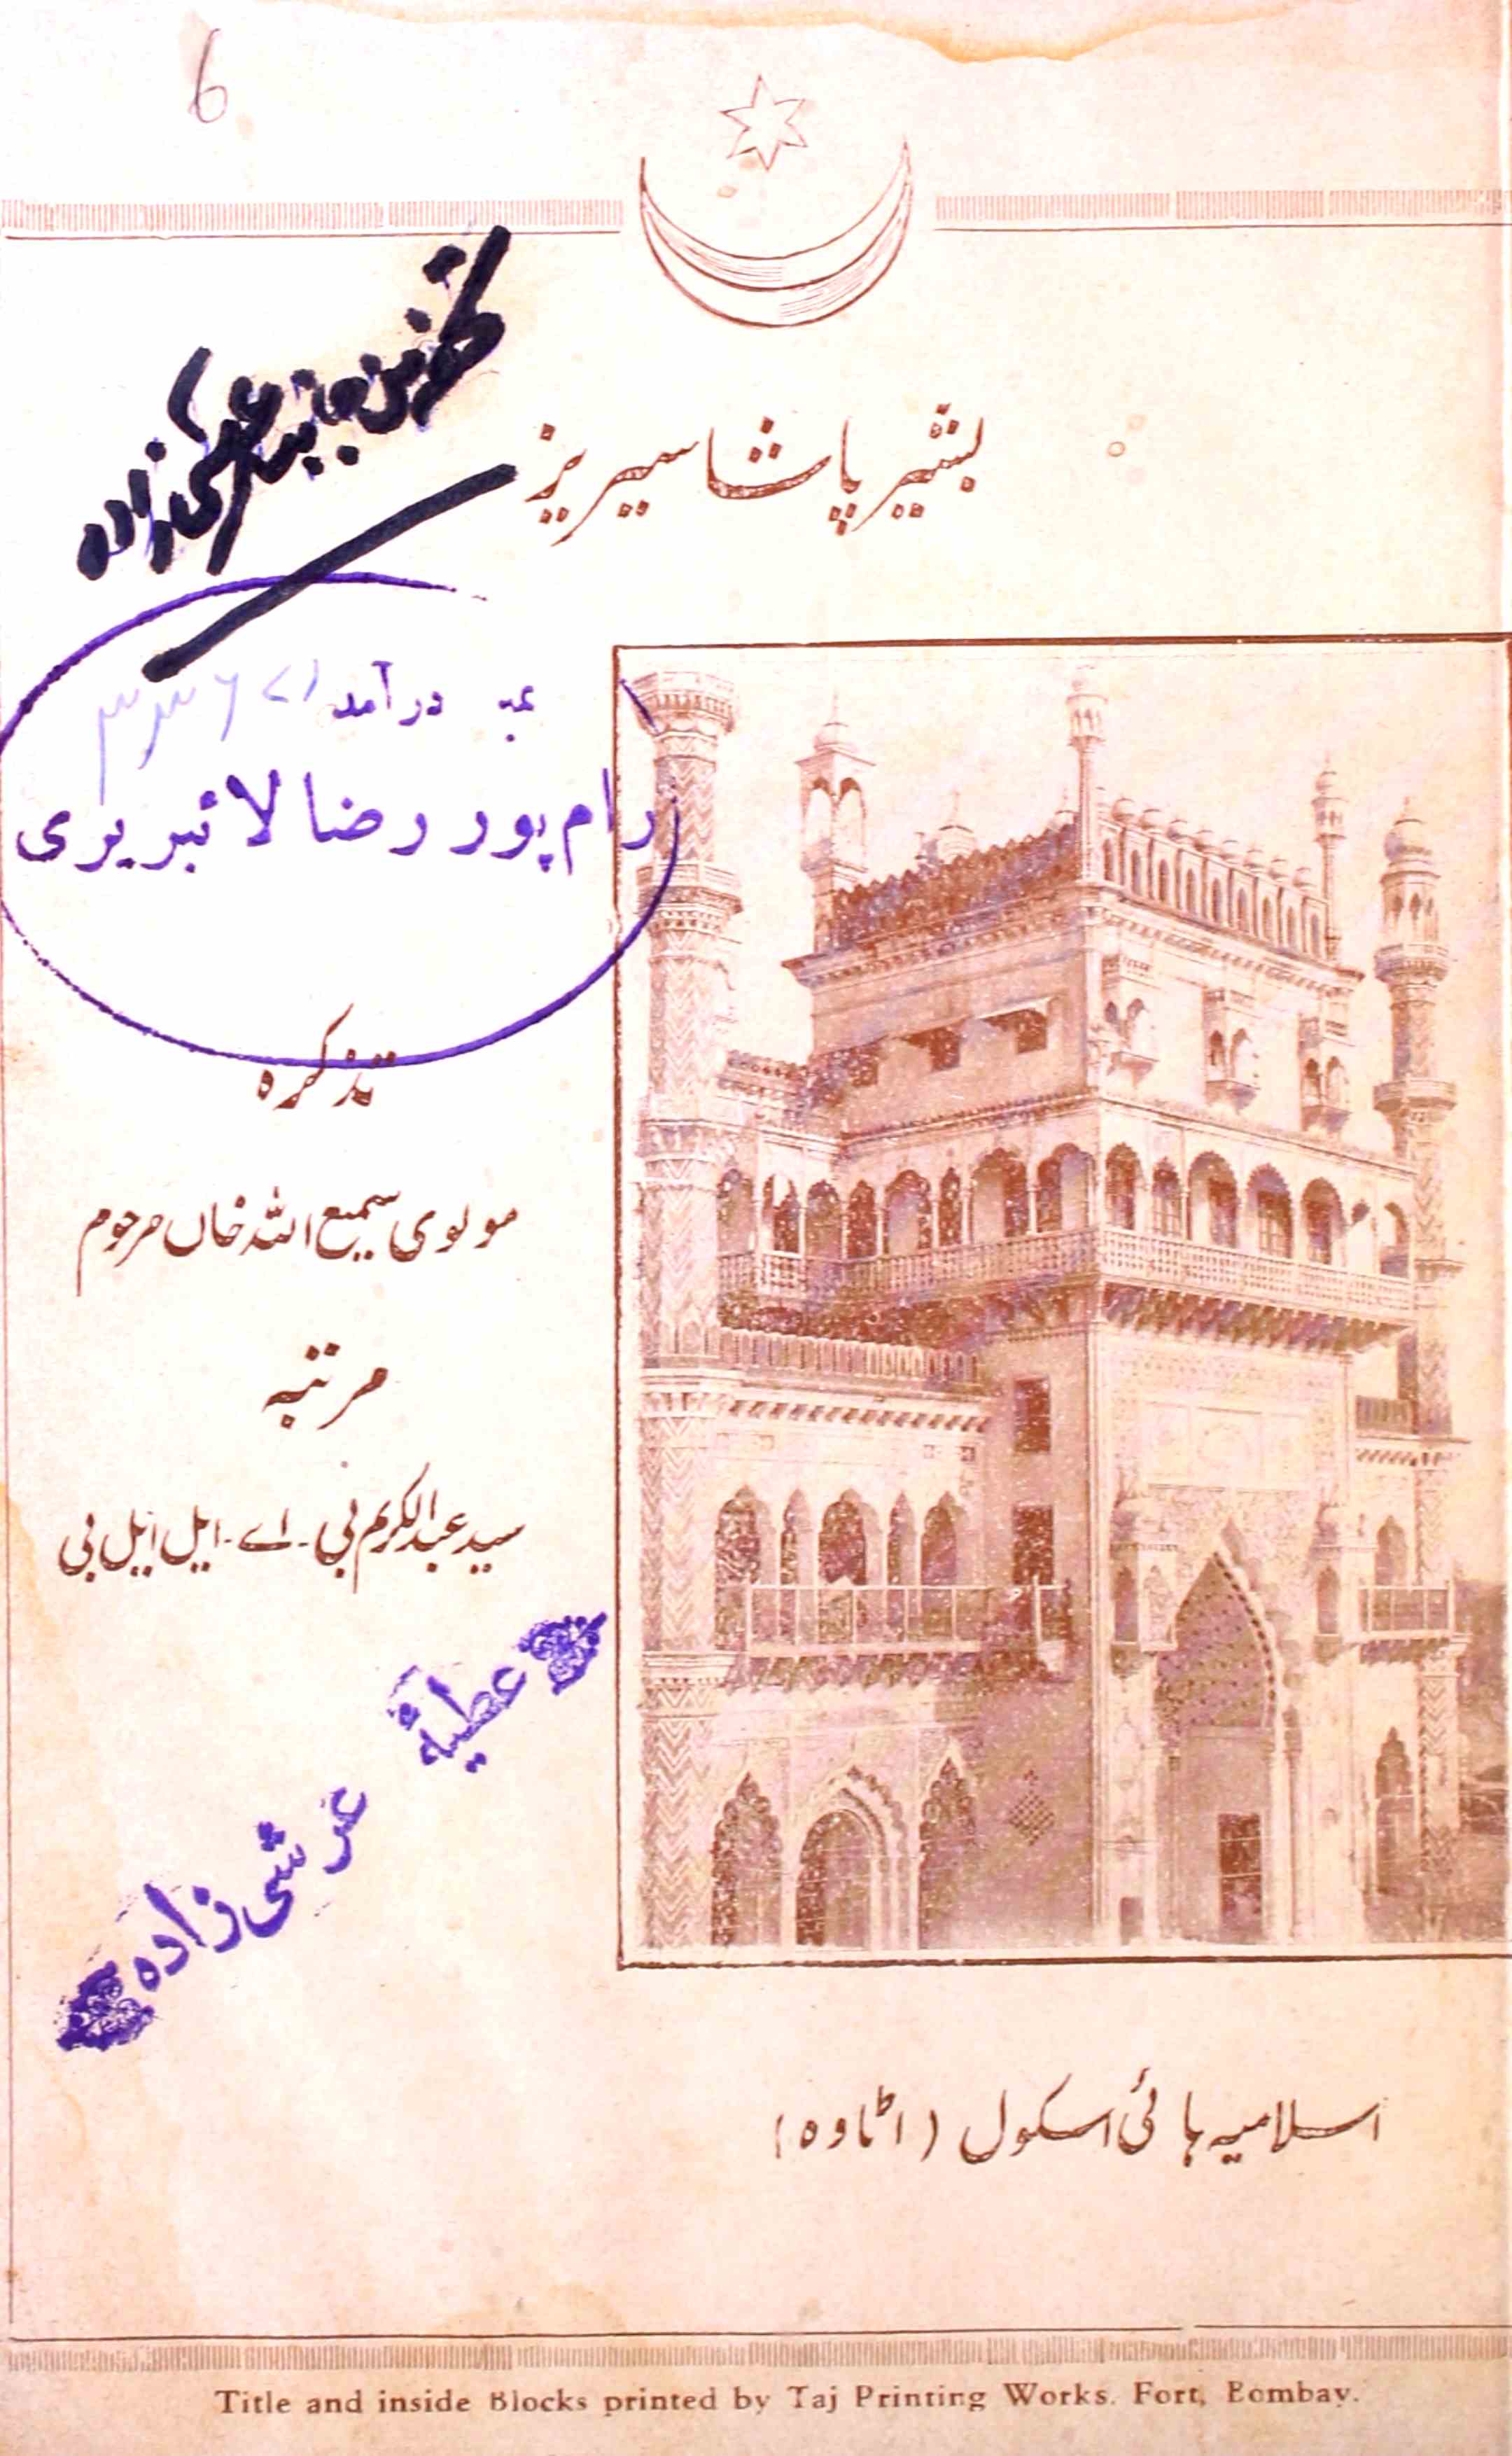 6
بشیر پاشا سیریز
تحفہ منجانب عرشی زادہ
نمبر درآمد
رام پور رضا لائبریری
تذکرہ
مولوی سمیع اللہ خاں مرحوم
مرتبہ
سید عبدالکریم بی۔ اے۔ ایل ایل بی
عطیہ
عرشی زادہ
اسلامیہ ہائی اسکول (اٹاوہ)
Title and inside Blocks printed by Taj Printing Works. Fort, Bombay.